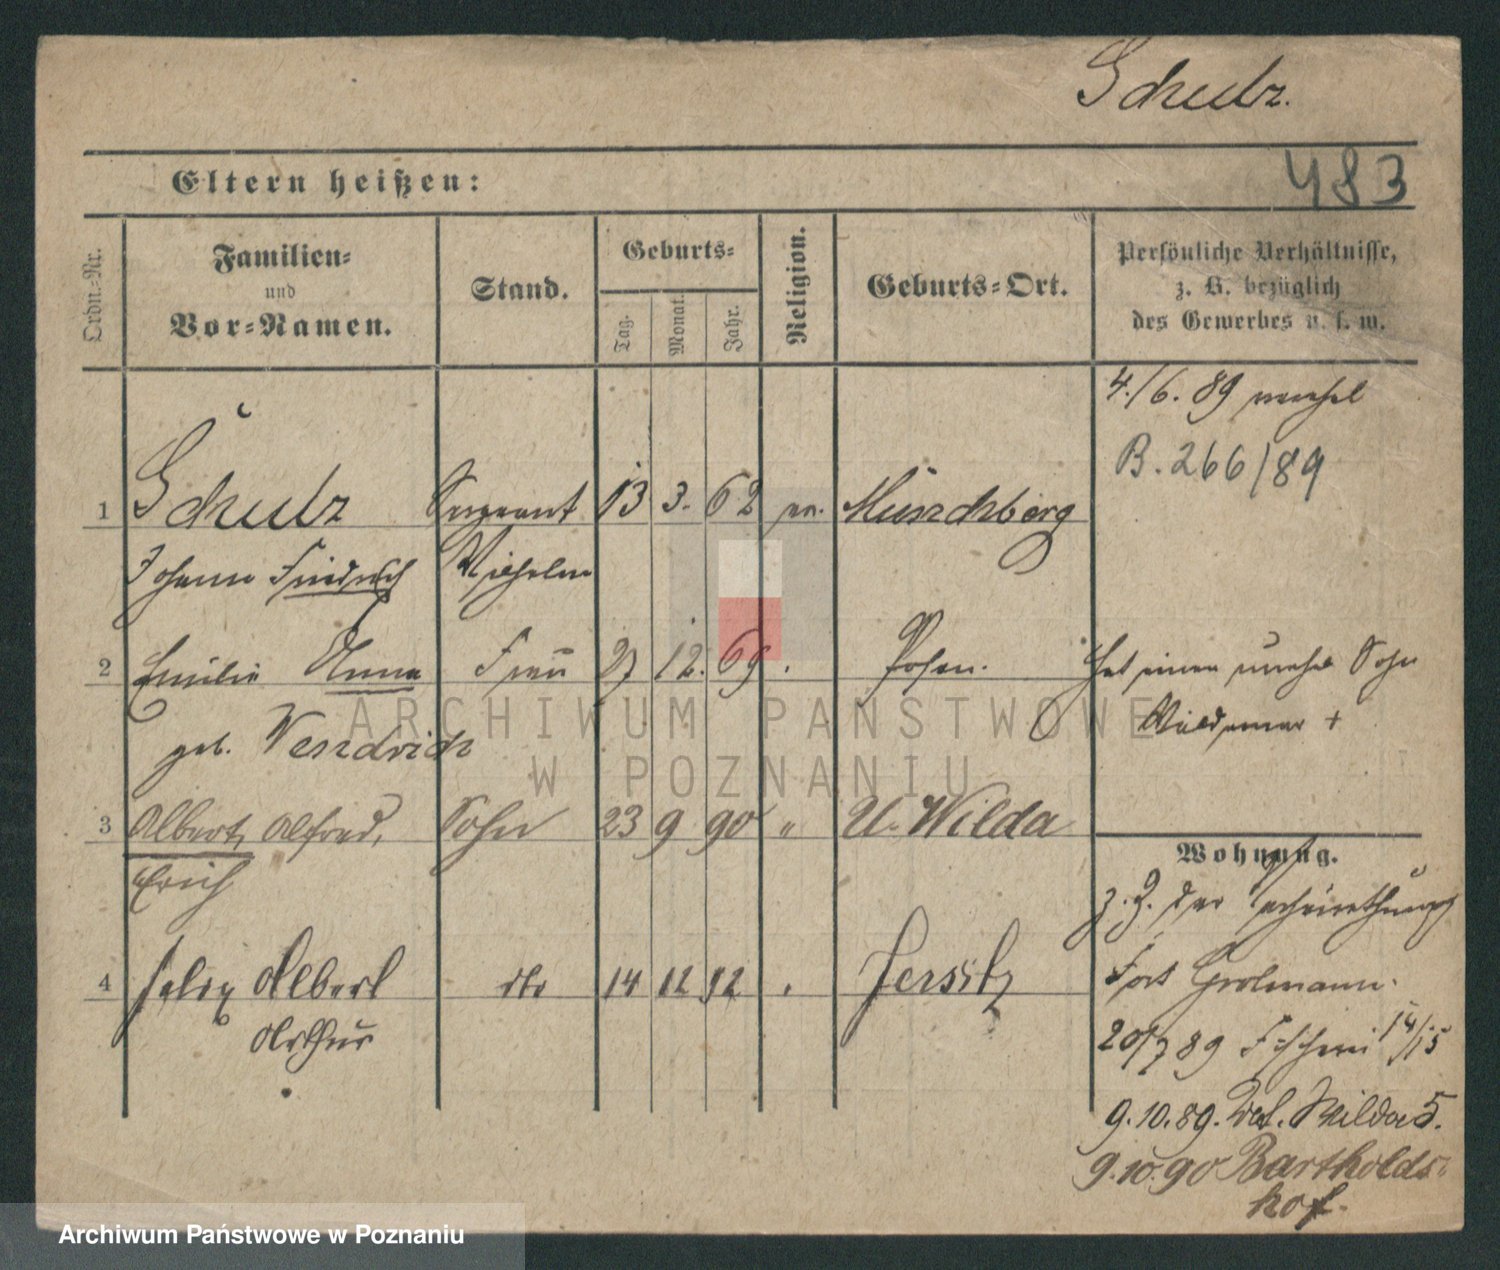 Schulz.
483
Eltern heißen:
Ordn.-Nr.
Familien-
und
Vor-Namen.
Stand.
Geburts-
Tag.
Monat.
Jahr.
Religion.
Geburts-Ort.
Persönliche Verhältnisse,
z. B. bezüglich
des Gewerbes u. s. w.
4./6. 89
B. 266/89
1 Schulz Sergeant 13 3. 62 ev. Müncheberg
Johann Friedrich Wilhelm
2 Emilie Anna Frau 27 12. 69 Posen.
geb. Wendrich
Hat einen unehel Sohn
Waldemar +
3 Albert, Alfred, Sohn 23 9 90 " U. Wilda
Erich
4 Felix Albert dto 14 12 92 Jersitz
Arthur
Wohnung.
z. Z. der
Fort Grolmann.
20/7 89 14/15
9.10.89. Wilda 5.
9.10.90 Bartholds-
hof.
ARCHIWUM PAŃSTWOWE
W POZNANIU
Archiwum Państwowe w Poznaniu